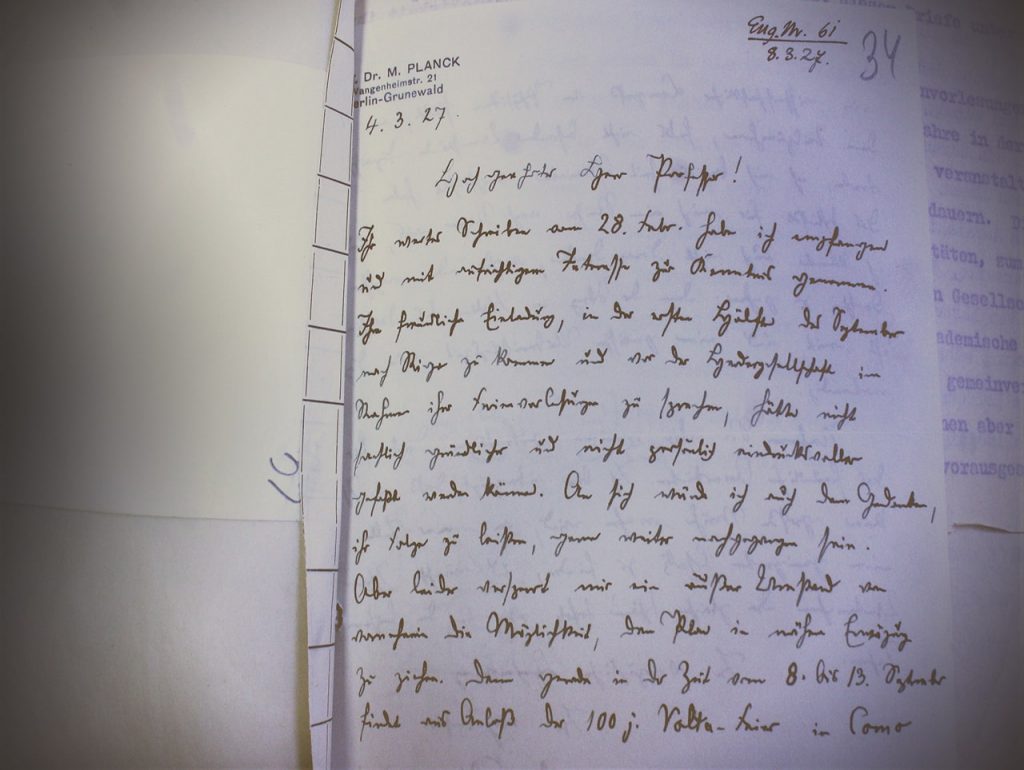 Eing. Nr. 61
8.3.27.
34
. Dr. M. PLANCK
Wangenheimstr. 21
erlin-Grunewald
4. 3. 27.
Hochverehrter Herr Professor!
Ihr wertes Schreiben vom 28. Febr. habe ich empfangen
und mit aufrichtigem Interesse zur Kenntnis genommen.
Ihre freundliche Einladung, in der ersten Hälfte des September
nach Riga zu kommen und vor der Herdergesellschaft im
Rahmen ihrer Ferienvorlesungen zu sprechen, hätte nicht
sachlich gründlicher und nicht persönlich eindrucksvoller
gefaßt werden können. An sich würde ich auch dem Gedanken,
ihr Folge zu leisten, gerne weiter nachgegangen sein.
Aber leider versperrt mir ein äußerer Umstand von
vornherein die Möglichkeit, den Plan in nähere Erwägung
zu ziehen. Denn gerade in der Zeit vom 8. bis 13. September
findet aus Anlaß der 100 j. Volta-Feier in Como
Briefe
nvorlesungen
ahre in der
veranstalt
dauern. D
täten, zum
n Gesellsc
ademische
gemeinver
nen aber
vorausges